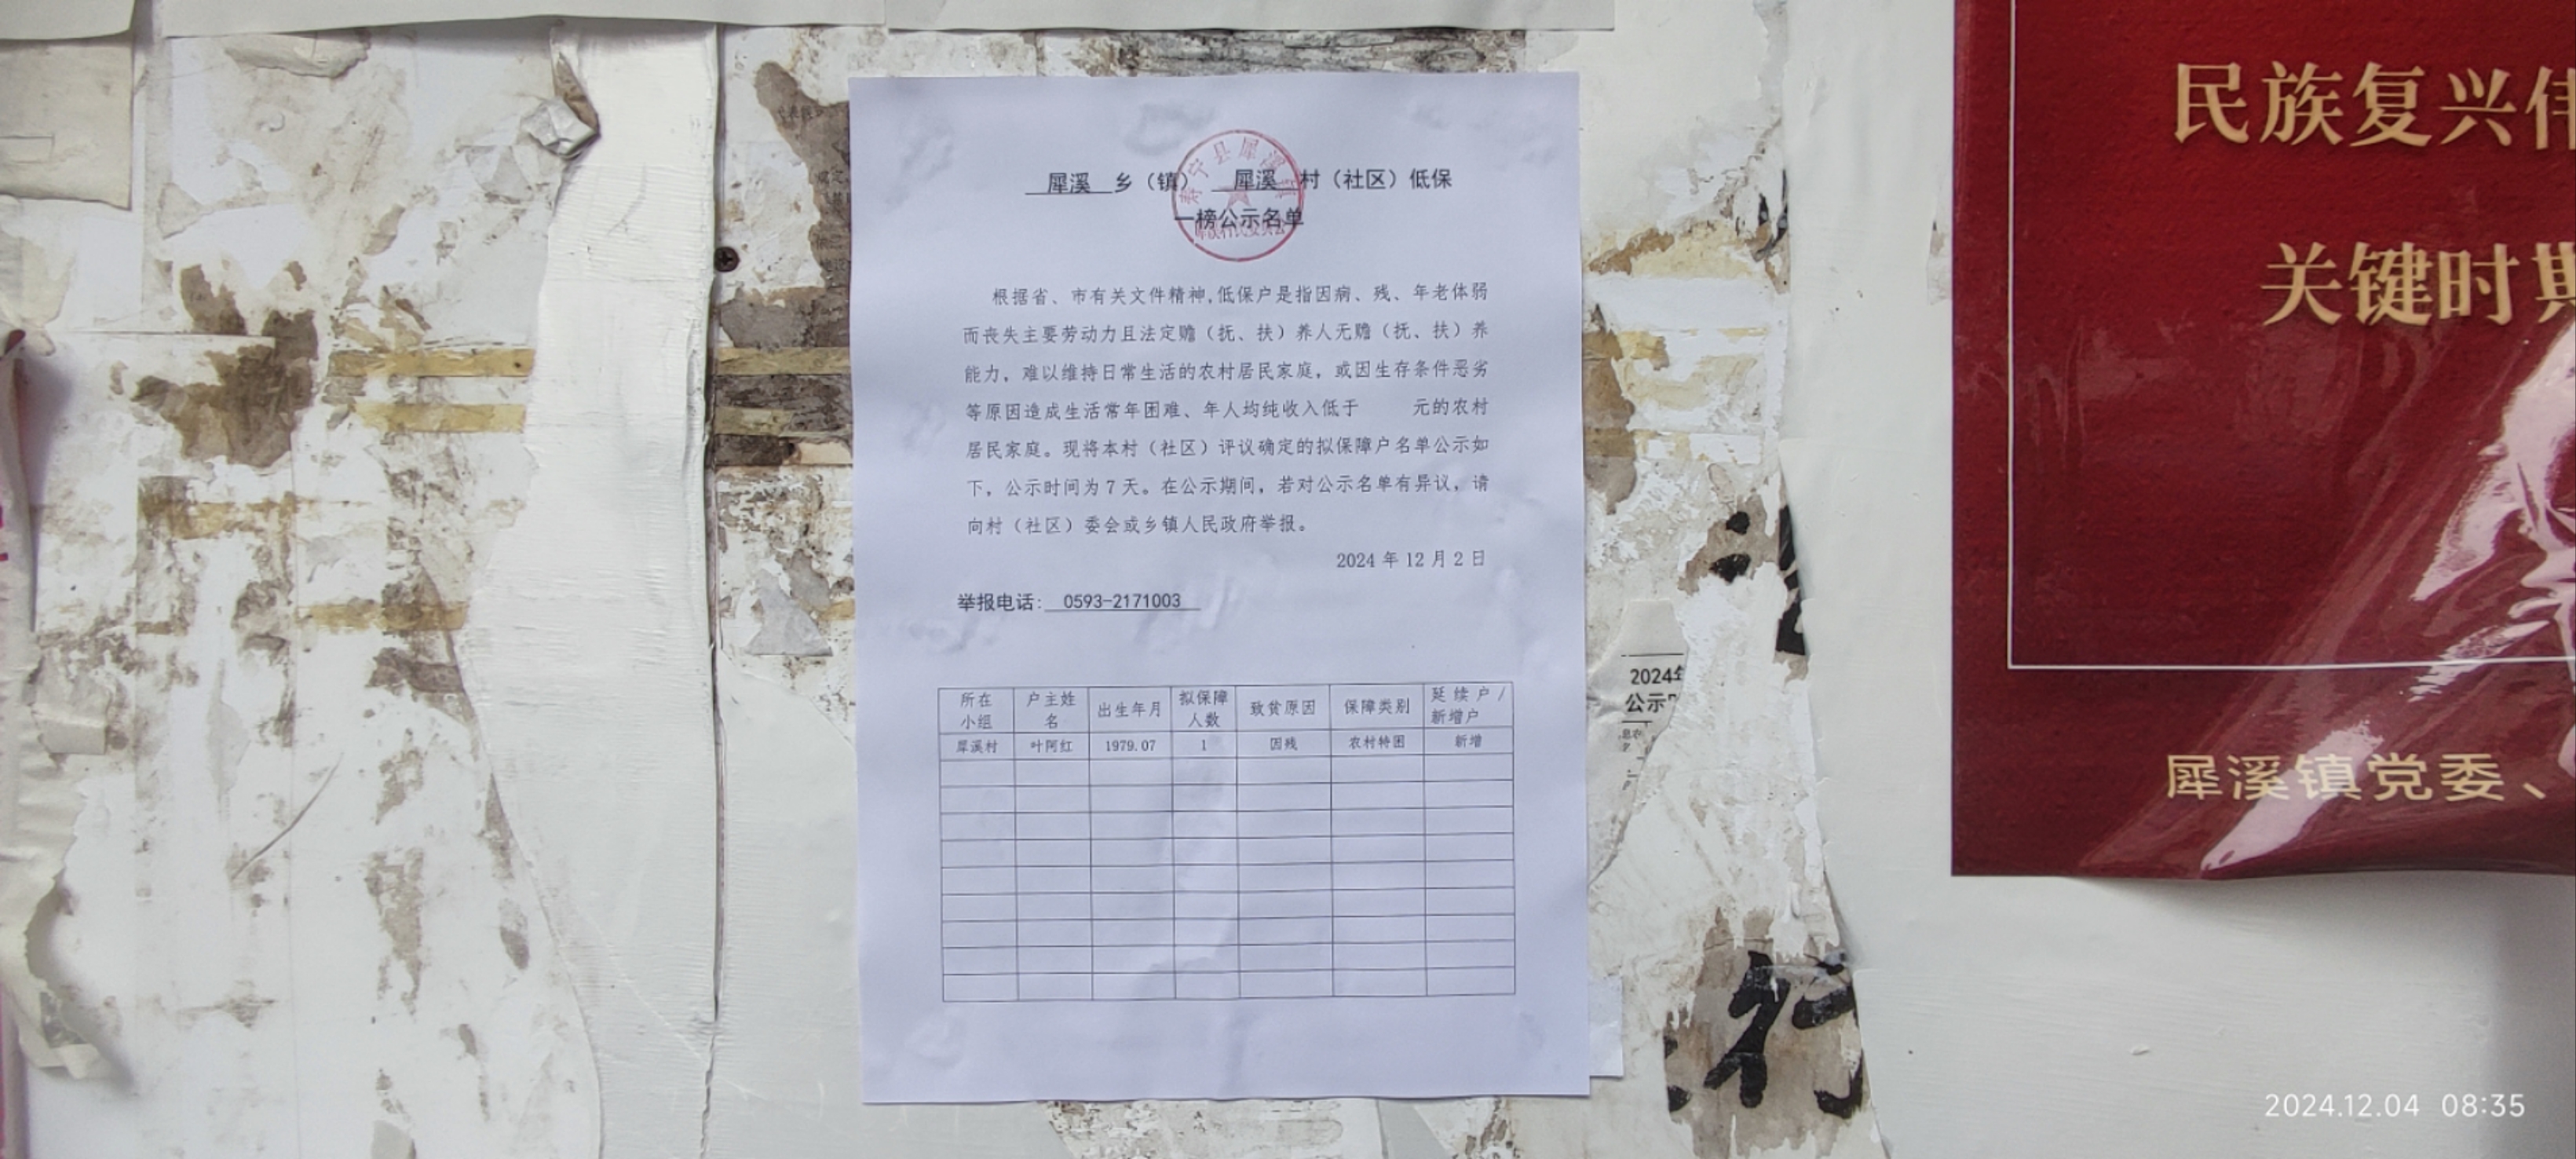 犀溪 乡（镇） 犀溪 村（社区）低保
一榜公示名单
寿宁县犀溪镇
犀溪村村民委员会
根据省、市有关文件精神,低保户是指因病、残、年老体弱
而丧失主要劳动力且法定赡（抚、扶）养人无赡（抚、扶）养
能力，难以维持日常生活的农村居民家庭，或因生存条件恶劣
等原因造成生活常年困难、年人均纯收入低于 元的农村
居民家庭。现将本村（社区）评议确定的拟保障户名单公示如
下，公示时间为 7 天。在公示期间，若对公示名单有异议，请
向村（社区）委会或乡镇人民政府举报。
2024 年 12 月 2 日
举报电话： 0593-2171003
所在小组 户主姓名 出生年月 拟保障人数 致贫原因 保障类别 延续户/新增户
犀溪村 叶阿红 1979.07 1 因残 农村特困 新增
2024年
公示
行
民族复兴伟
关键时期
犀溪镇党委、
2024.12.04 08:35